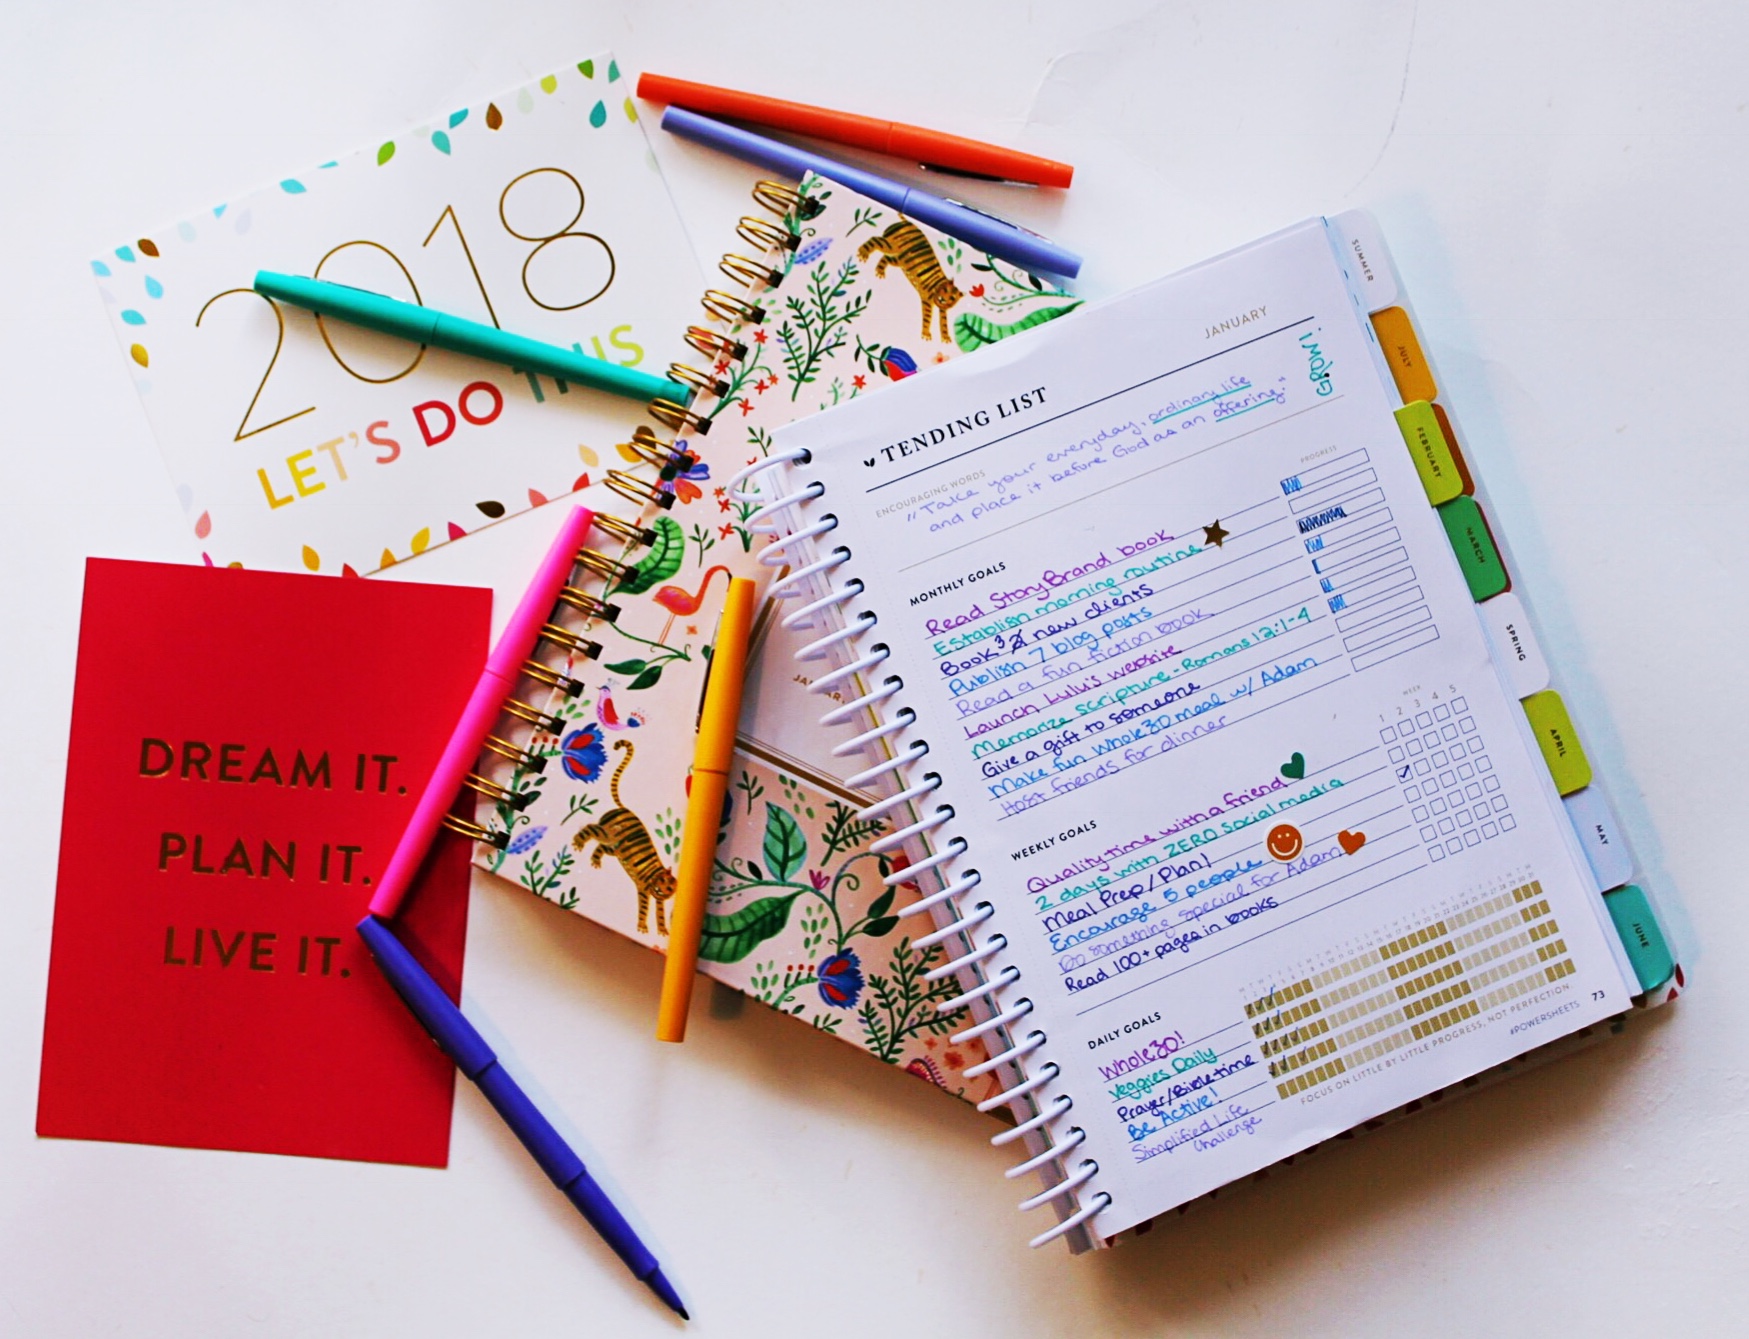 2018
LET'S DO THIS
DREAM IT.
PLAN IT.
LIVE IT.
JANUARY
TENDING LIST
GROW!
ENCOURAGING WORDS
"Take your everyday, ordinary life
and place it before God as an offering."
PROGRESS
MONTHLY GOALS
Read StoryBrand book
Establish morning routine
Book 3 new clients
Publish 7 blog posts
Read a fun fiction book
Launch Lulu's website
Memorize scripture - Romans 12:1-4
Give a gift to someone
Make fun Whole30 meal w/ Adam
Host friends for dinner
WEEKLY GOALS
WEEK
1 2 3 4 5
Quality time with a friend
2 days with ZERO social media
Meal Prep/Plan!
Encourage 5 people
Do something special for Adam
Read 100+ pages in books
DAILY GOALS
Whole30!
Veggies Daily
Prayer/Bible time
Be Active!
Simplified Life
Challenge
FOCUS ON LITTLE BY LITTLE PROGRESS, NOT PERFECTION.
#POWERSHEETS 73
SUMMER
JULY
FEBRUARY
MARCH
SPRING
APRIL
MAY
JUNE